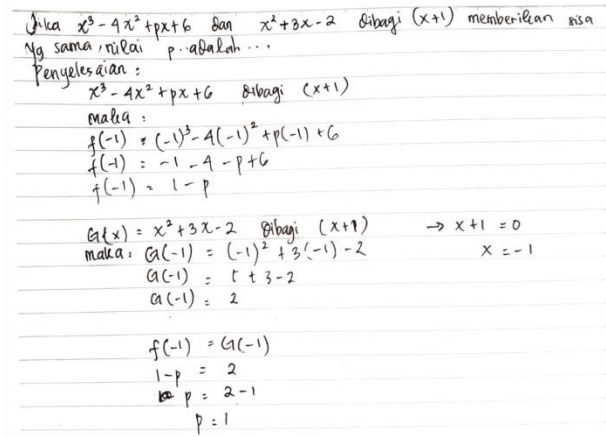 Jika x³ - 4x² + px + 6 dan x² + 3x - 2 dibagi (x+1) memberikan sisa
yg sama, nilai p adalah ...
Penyelesaian :
x³ - 4x² + px + 6 dibagi (x+1)
maka :
f(-1) = (-1)³ - 4(-1)² + p(-1) + 6
f(-1) = -1 - 4 - p + 6
f(-1) = 1 - p
G(x) = x² + 3x - 2 dibagi (x+1) → x + 1 = 0
maka : G(-1) = (-1)² + 3(-1) - 2 x = -1
G(-1) = 1 + 3 - 2
G(-1) = 2
f(-1) = G(-1)
1 - p = 2
p = 2 - 1
p = 1